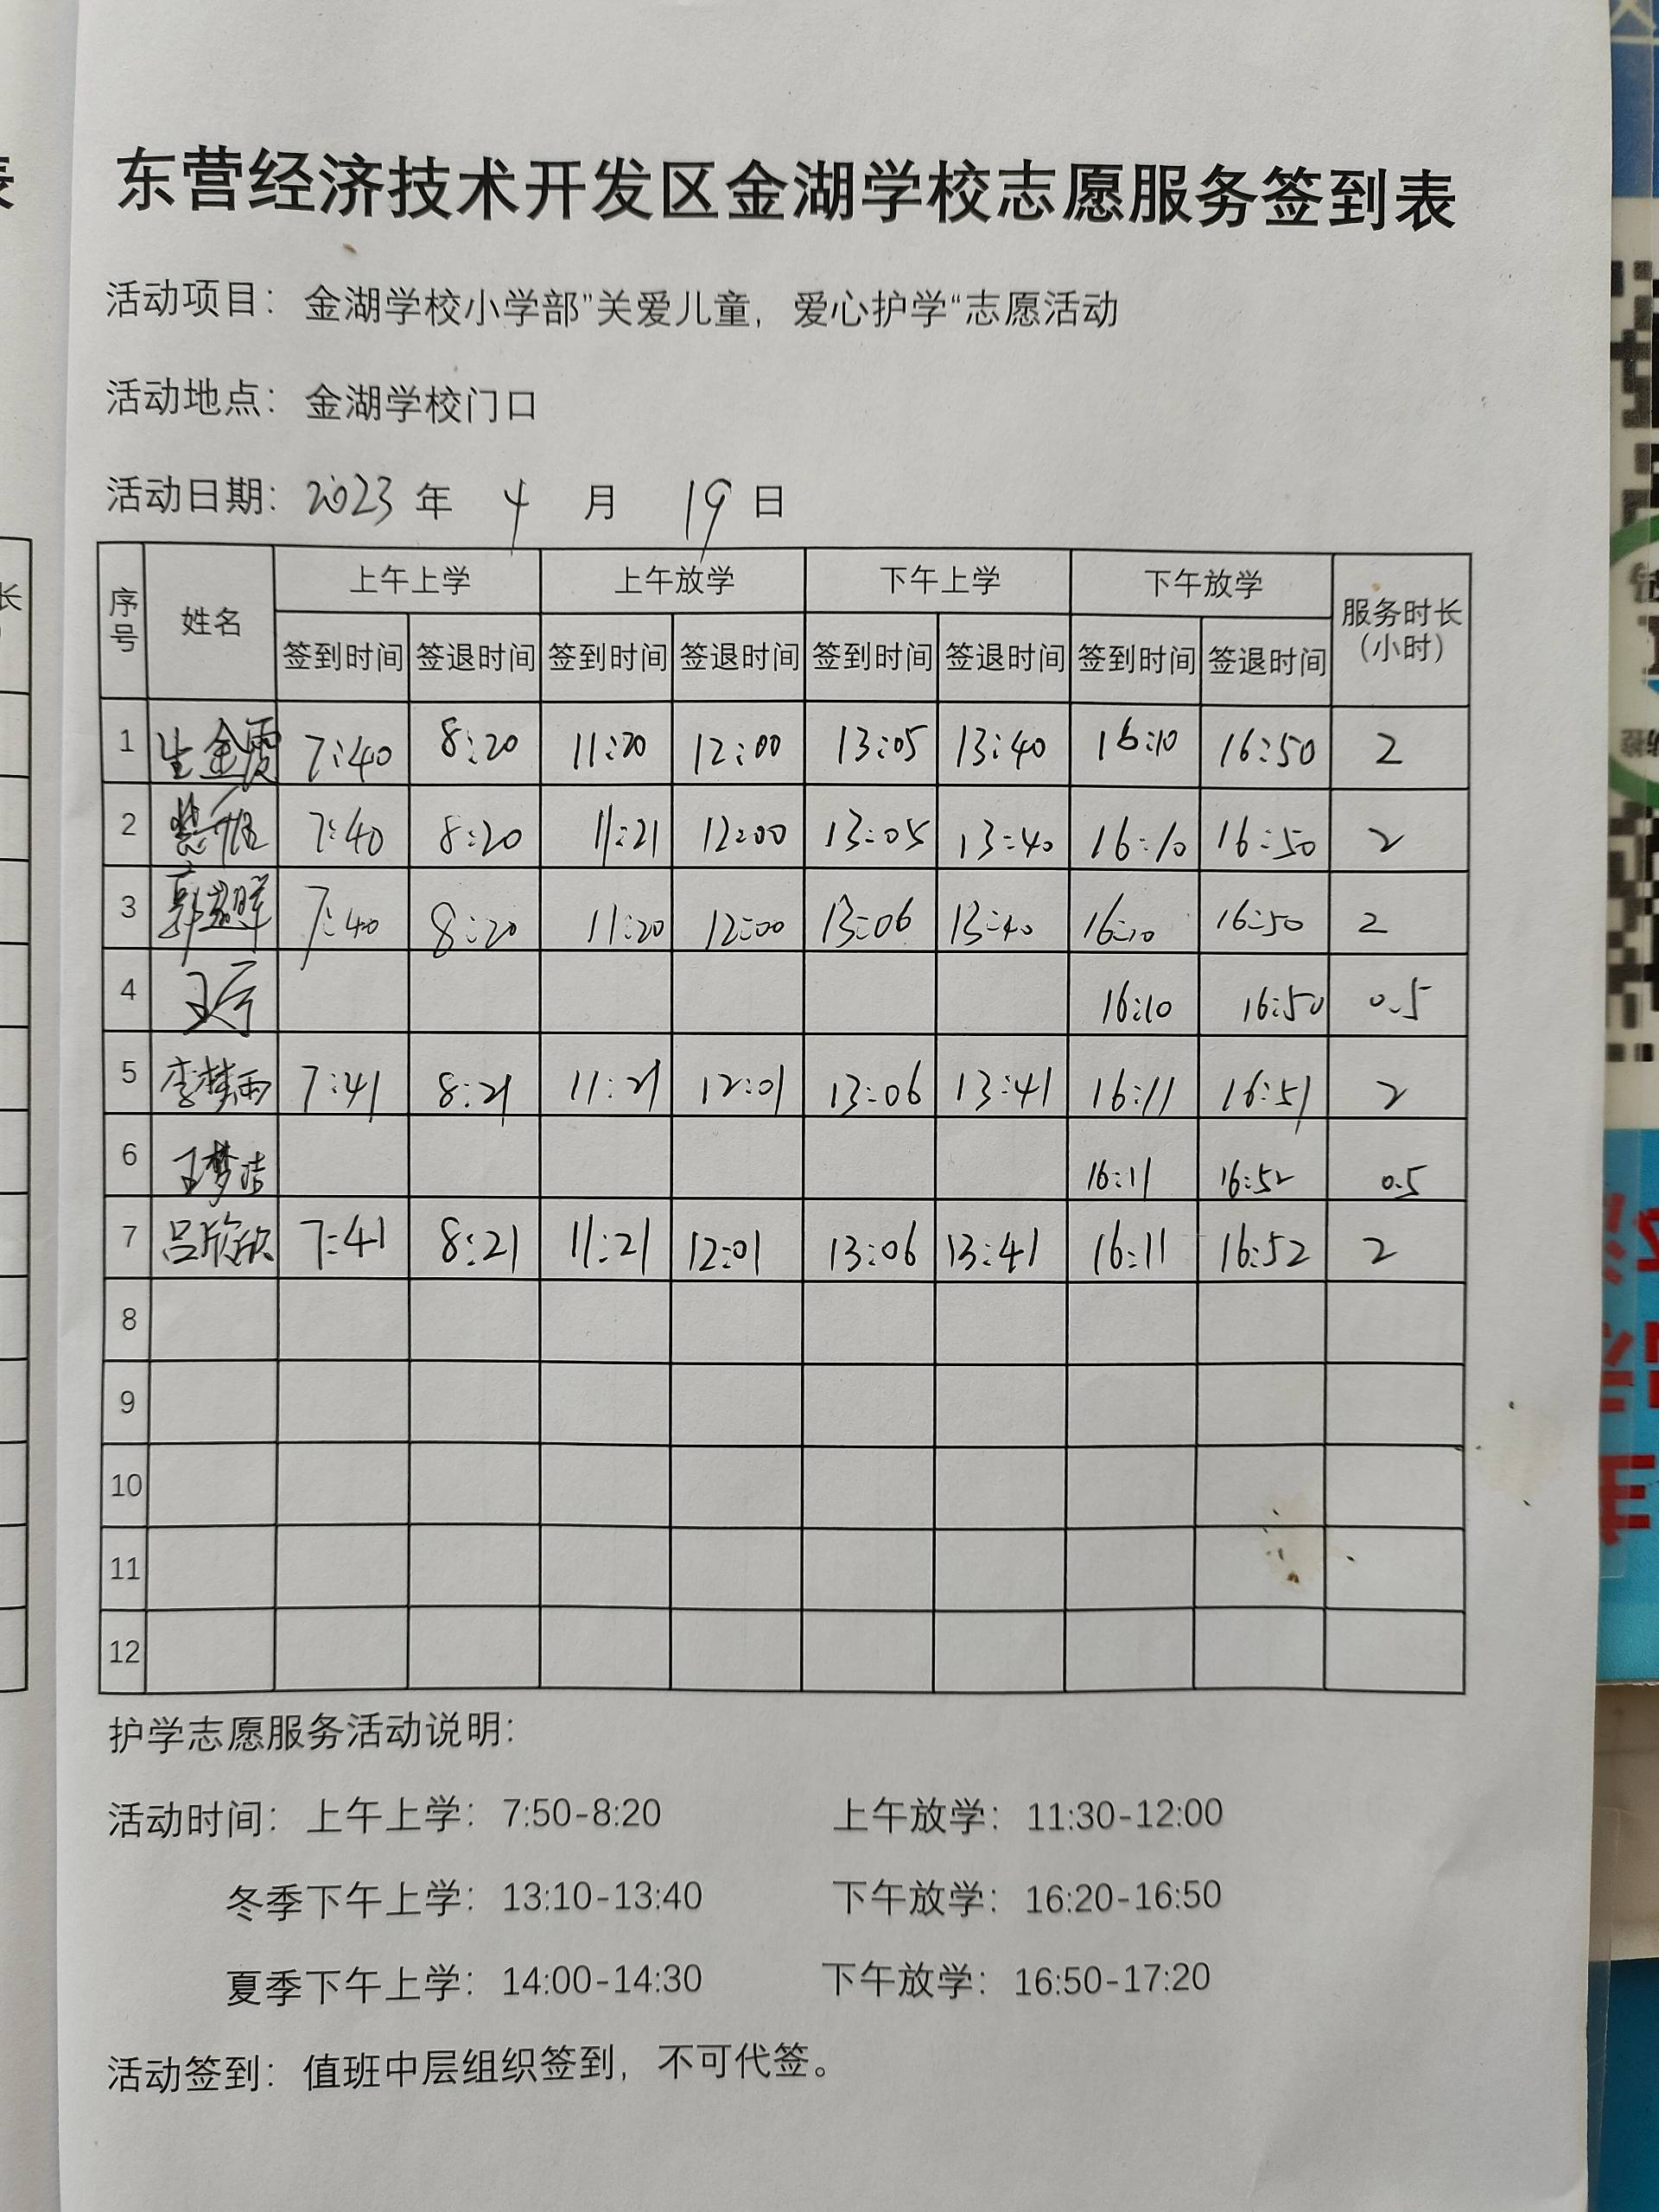 东营经济技术开发区金湖学校志愿服务签到表
活动项目：金湖学校小学部”关爱儿童，爱心护学“志愿活动
活动地点：金湖学校门口
活动日期：2023 年 4 月 19 日
序号 姓名 上午上学 上午放学 下午上学 下午放学 服务时长（小时）
签到时间 签退时间 签到时间 签退时间 签到时间 签退时间 签到时间 签退时间
1 生金霞 7:40 8:20 11:20 12:00 13:05 13:40 16:10 16:50 2
2 7:40 8:20 11:21 12:00 13:05 13:40 16:10 16:50 2
3 7:40 8:20 11:20 12:00 13:06 13:40 16:10 16:50 2
4 16:10 16:50 0.5
5 李梦雨 7:41 8:21 11:21 12:01 13:06 13:41 16:11 16:51 2
6 王梦洁 16:11 16:52 0.5
7 吕欣欣 7:41 8:21 11:21 12:01 13:06 13:41 16:11 16:52 2
8
9
10
11
12
护学志愿服务活动说明：
活动时间：上午上学：7:50-8:20 上午放学：11:30-12:00
冬季下午上学：13:10-13:40 下午放学：16:20-16:50
夏季下午上学：14:00-14:30 下午放学：16:50-17:20
活动签到：值班中层组织签到，不可代签。